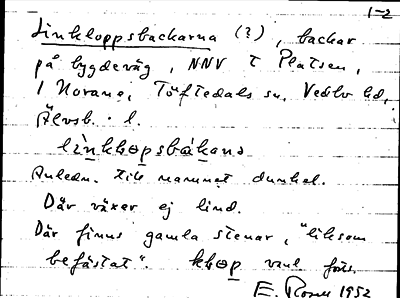 1-2
Linkloppsbackarna (?), backar
på bygdeväg, NNV T Platsen,
i Norane, Töftedals sn, Vedbo hd,
Älvsb. l.
linkkopsbàkana
Anledn. till namnet dunkel.
Där växer ej lind.
Där finns gamla stenar, "liksom
befästat". kkop vanl
E. Rosen 1952